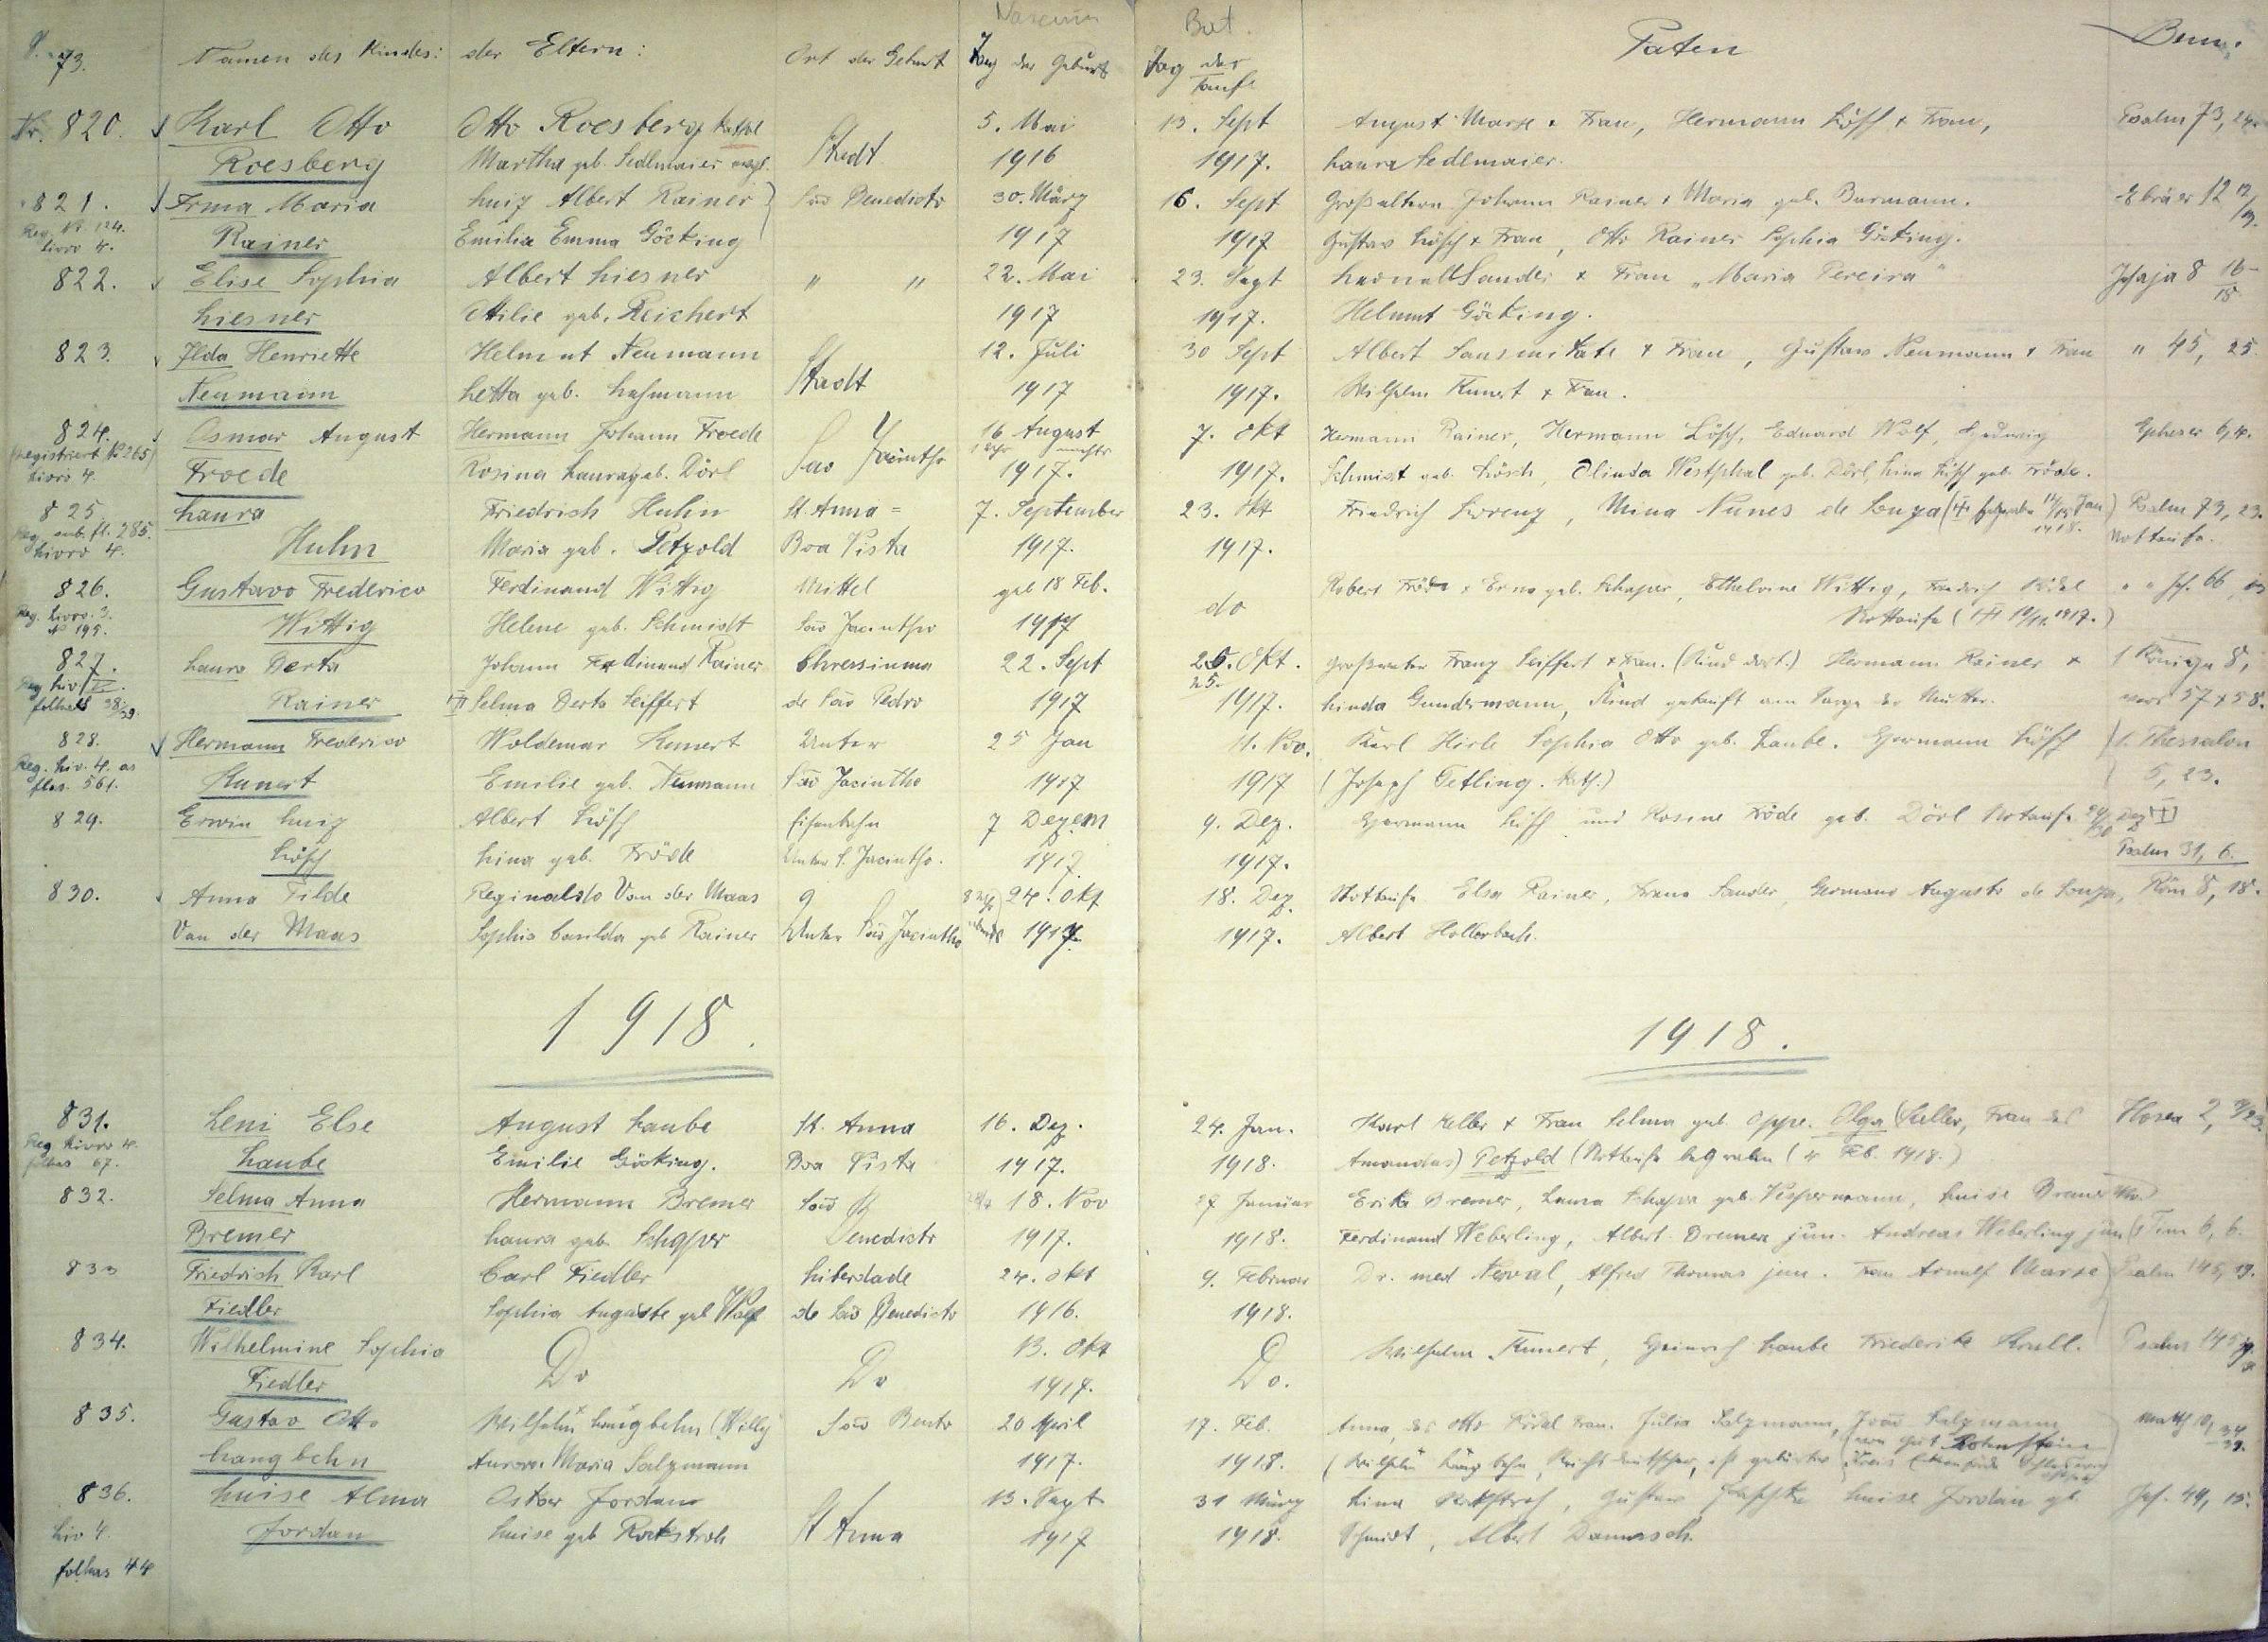 Nascim
Bat.
73. Namen des Kindes: der Eltern: Ort der Geburt Tag der Geburt Tag der Taufe Paten Bem.
Nr. 820. Karl Otto Otto Roesberg kathol Stadt 5. Mai 13. Sept August Marx + Frau, Hermann Lösch + Frau, Psalm 73, 24.
Roesberg Martha geb. Sedlmaier evgl. 1916 1917. Laura Sedlmaier.
821. Irma Maria Luiz Albert Rainer São Benedicto 30. März 16. Sept Großeltern Johann Rainer + Maria geb. Burmann. Ebräer 12 12/13.
Reg. No 124. Livro 4. Rainer Emilia Emma Göcking 1917 1917 Gustav Lösch + Frau, Otto Rainer Sophia Göcking.
822. Elise Sophia Albert Liesner " " 22. Mai 23. Sept Sander + Frau "Maria Pereira" Jesaja 8 16-18
Liesner Ottilie geb. Reichert 1917 1917. Helmut Göcking.
823. Ilda Henriette Helmut Neumann Stadt 12. Juli 30 Sept Albert + Frau, Gustav Neumann + Frau " 45, 25.
Neumann Letta geb. Lehmann 1917 1917. Wilhelm Kunert + Frau.
824. Osmar August Hermann Johann Froede Sao Jacintho 16 August 7. Okt Hermann Rainer, Hermann Lösch, Eduard Wolf, Hedwig Epheser 6, 4.
(registriert No 265) Livro 4. Froede Rosina Laura geb. Dörl 1 Uhr nachts 1917. 1917. Schmidt geb. Lösch, Olinda Westphal geb. Dörl, Lina Lösch geb. Fröde.
825 Laura Friedrich Huhn St. Anna = 7. September 23. Okt Friedrich Lorenz, Mina Nunes de Souza Jan 1918. Psalm 73, 23.
Reg. sub. fl. 285. Livro 4. Huhn Maria geb. Petzold Boa Vista 1917. 1917. Nottaufe.
826. Gustavo Frederico Ferdinand Wittig Mittel geb 18 Feb. do Robert Fröde + Erna geb. Schaper, Ethelvine Wittig, Friedrich Rödel " " Jes. 66,
Reg. Livro 3. No 195. Wittig Helene geb. Schmidt São Jacintho 1917 Nottaufe ( 10/11. 1917.)
827. Laura Berta Johann Ferdinand Rainer Chressiuma 22. Sept 25. Okt. Großvater Franz Seiffert + Frau. (Kind dort.) Hermann Rainer + 1 Könige 8,
Reg Liv folhas 38/39. Rainer Selma Berta Seiffert de São Pedro 1917 25. 1917. Linda Gundermann, Kind getauft am Sarge der Mutter. vers 57 + 58.
828. Hermann Frederico Woldemar Kunert Unter 25 Jan 11. Nov. Karl Hirle Sophia Otto geb. Laube. Hermann Lösch 1. Thessalon
Reg. Liv. 4. as flas. 561. Kunert Emilie geb. Neumann São Jacintho 1917 1917 (Joseph Tetling. Kath.) 5, 23.
829. Erwin Luiz Albert Lösch Eisenbahn 7 Dezem 9. Dez. Hermann Lösch und Rosine Fröde geb. Dörl Notaufe Dez
Lösch Lina geb. Fröde Unter S. Jacintho. 1917 1917. Psalm 31, 6.
830. Anna Tilde Reginaldo Van der Maas 9 8 Uhr 24. Okt 18. Dez. Nottaufe Elsa Rainer, Franz Sander, Germano Augusto de Souza, Röm 8, 18.
Van der Maas Sophia Casilda geb Rainer Unter São Jacintho abends 1917. 1917. Albert Hollerbach.
1918.
1918.
831. Leni Else August Laube St. Anna 16. Dez. 24. Jan. Karl Keller + Frau Selma geb. Oppe. Olga (Keller, Frau des Hosea 2,
Reg Livro 4. folhas 67. Laube Emilie Göcking. Boa Vista 1917. 1918. Amandus) Petzold (Nottaufe begraben ( 4 Feb. 1918.)
832. Selma Anna Hermann Bremer São 18. Nov 27 Januar Erika Bremer, Laura Schaper geb. Vespermann, Luise Bremer
Bremer Laura geb. Schaper Benedicto 1917. 1918. Ferdinand Weberling, Albert Bremer jun. Andreas Weberling jün 1 Tim 6, 6.
833 Friedrich Karl Carl Fiedler Liberdade 24. Okt 9. Februar Dr. med Nerval, Alfred Thomas jun. Frau Arnulf Marx Psalm 145, 19.
Fiedler Sophia Auguste geb Wolf de São Benedicto 1916. 1918.
834. Wilhelmine Sophia Do Do 13. Okt Do. Wilhelm Kunert, Heinrich Laube Friederike Krull. Psalm 145
Fiedler 1917.
835. Gustav Otto Wilhelm Langbehn (Willy São Bento 20 April 17. Feb. Anna, des Otto Rödel Frau. Julia Salzmann, João Salzmann Matth 10, 34-39.
Langbehn Aurora Maria Salzmann 1917. 1918. (Wilhelm Langbehn, Reichsdeutscher, ist gebürtig von Gut Rohnstein Kreis
836. Luise Alma Oskar Jordan St Anna 13. Sept 31 März Lina Rockstroh, Gustav Luise Jordan gb. Jes. 49, 15.
Liv 4. Jordan Luise geb Rockstroh 1917 1918. Schmidt, Albert Damasch.
folhas 44